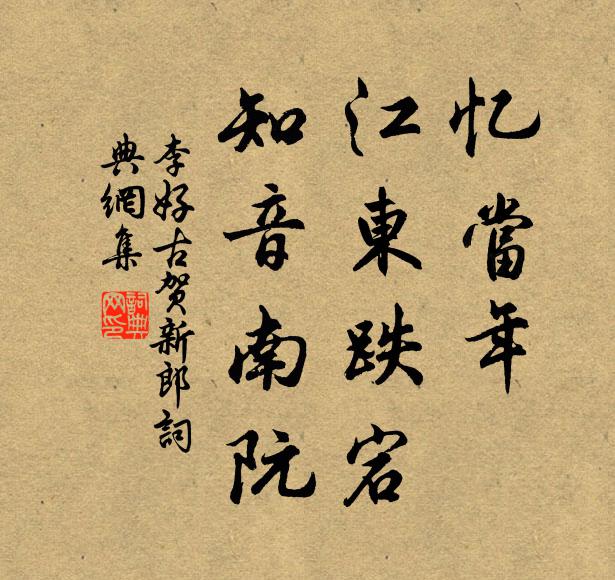 忆當年
江東跌宕
知音南阮
李好古贺新郎詞
典網集
詞典
网印